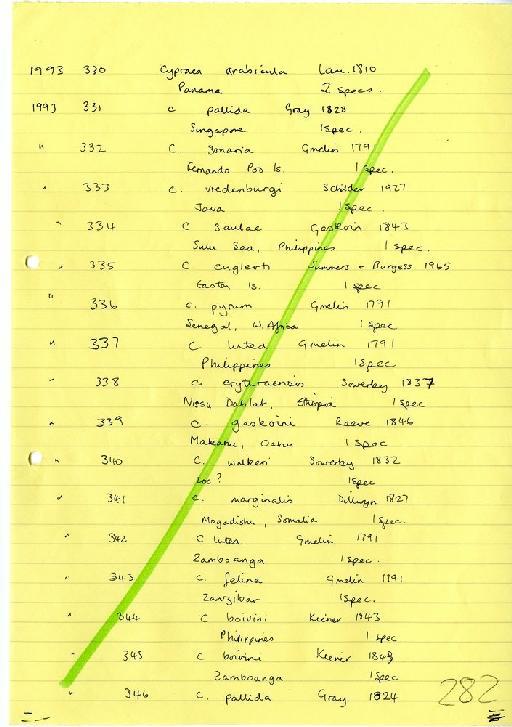 1993 330 Cypraea arabicula Lam. 1810
Panama 2 Specs.
1993 331 C pallida Gray 1828
Singapore 1 Spec.
" 332 C Zonaria Gmelin 1791
Fernando Poo Is. 1 Spec.
" 333 C. vredenburgi Schilder 1927
Java 1 Spec.
" 334 C Saulae Gaskoin 1843
Sulu Sea, Philippines 1 Spec.
" 335 C englerti Summers + Burgess 1965
Easter Is. 1 Spec
" 336 C. pyrum Gmelin 1791
Senegal, W. Africa 1 Spec
" 337 C lutea Gmelin 1791
Philippines 1 Spec
" 338 C. erythraensis Sowerby 1837
Dahlak, Ethiopia 1 Spec
" 339 C gaskoini Reeve 1846
Makaha, Oahu 1 Spec
" 340 C. walkeri Sowerby 1832
Loc? 1 Spec
" 341 C. marginalis Dillwyn 1827
Mogadishu, Somalia 1 Spec.
" 342 C lutea Gmelin 1791
Zamboanga 1 Spec.
" 343 C. felina Gmelin 1791
Zanzibar 1 Spec.
" 344 C boivini Kiener 1843
Philippines 1 Spec
" 345 C boivini Kiener 1843
Zamboanga 1 Spec
" 346 C. pallida Gray 1824
282